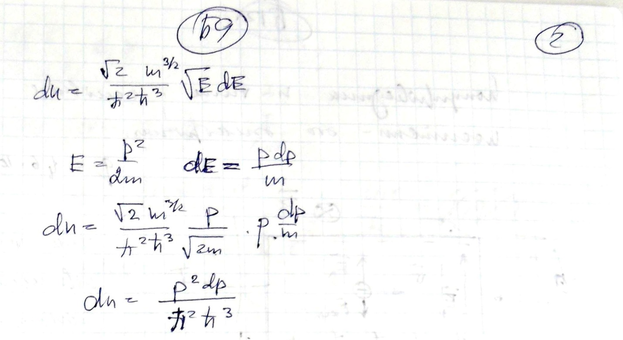 Б9 2
dn = √2 m^3/2 / ħ²ħ³ √E dE
E = p² / 2m dE = p dp / m
dn = √2 m^3/2 / ħ²ħ³ p / √2m · p · dp / m
dn = p² dp / ħ² ħ³